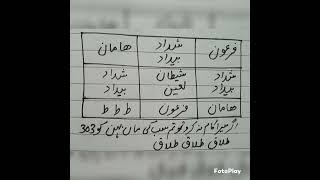 فرعون شداد بیداد هامان
شداد بیداد شیطان لعین شداد بیداد
هامان فرعون ط ط ط
اگر میرا کام نہ کرو تو تم سب کی ماں بہن کو 303
طلاق طلاق طلاق
FotoPlay